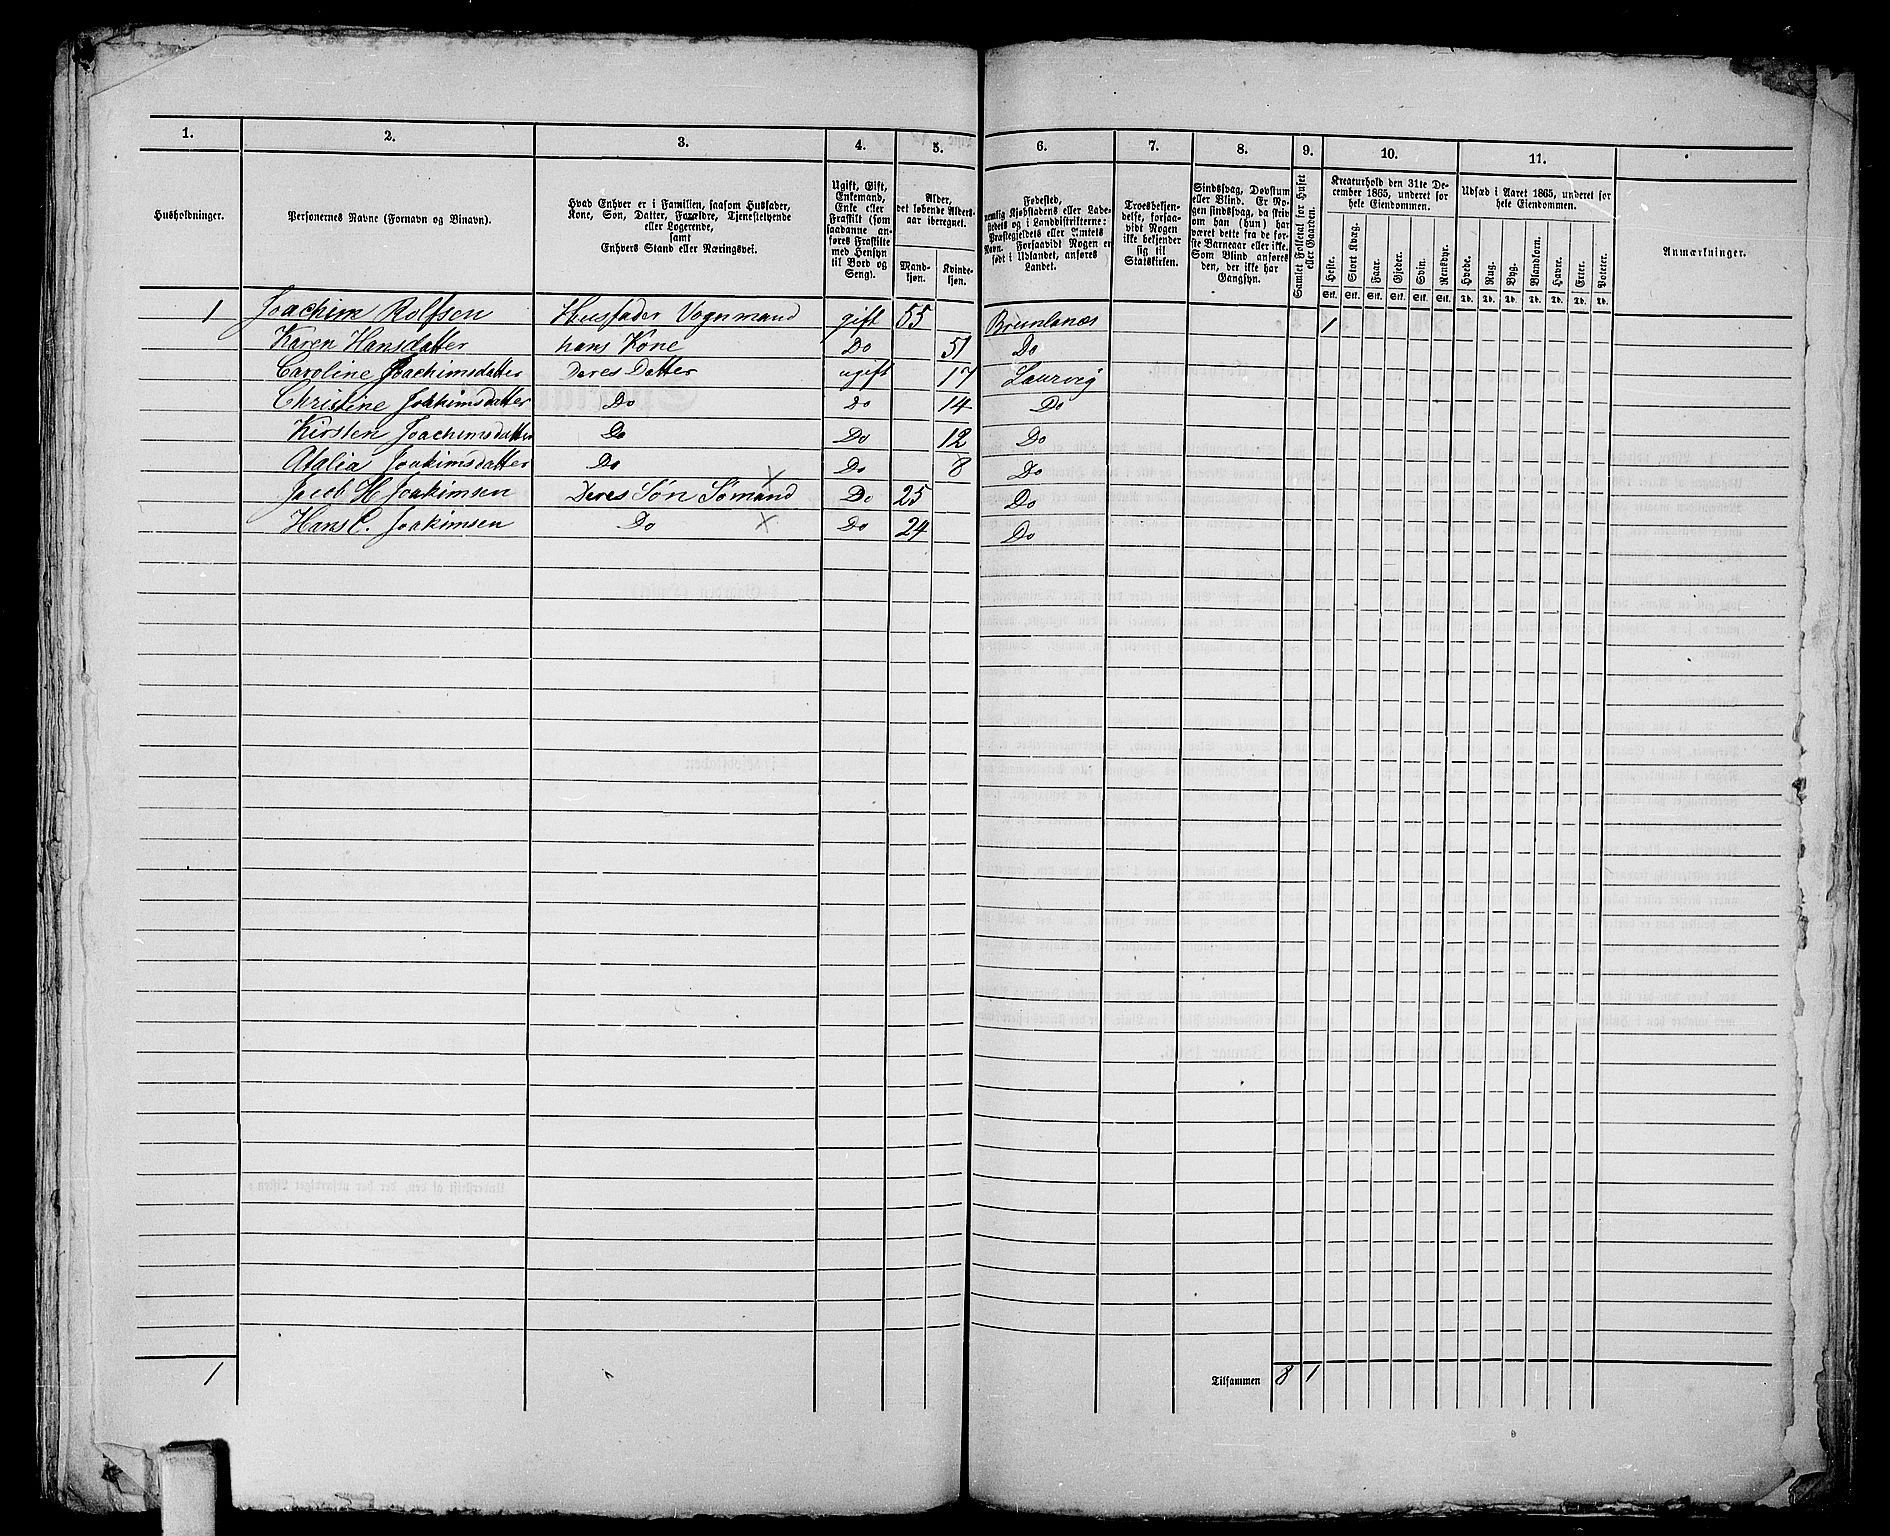 1. 2. 3. 4. 5. 6. 7. 8. 9. 10. 11.
Husholdninger.
Personernes Navne (Fornavn og Binavn).
Hvad Enhver er i Familien, saasom Husfader,
Kone, Søn, Datter, Forældre, Tjenestetyende
eller Logerende,
samt
Enhvers Stand eller Næringsvei.
Ugift, Gift,
Enkemand,
Enke eller
Fraskilt (som
saadanne an-
føres Fraskilte
med Hensyn
til Bord og
Seng).
Alder,
det løbende Alders-
aar iberegnet.
Mand-
kjøn.
Kvinde-
kjøn.
Fødested,
nemlig Kjøbstadens eller Lade-
stedets og i Landdistrikterne:
Præstegjeldets eller Amtets
Navn. Forsaavidt Nogen er
født i Udlandet, anføres
Landet.
Troesbekjen-
delse, forsaa-
vidt Nogen
ikke bekjender
sig til
Statskirken.
Sindssvag, Døvstum
eller Blind. Er No-
gen sindssvag, da skriv
om han (hun) har
været dette fra de før-
ste Barneaar eller ikke.
Som Blind anføres
den, der ikke har
Gangsyn.
Samlet Folketal for Huset
eller Gaarden.
Kreaturhold den 31te De-
cember 1865, underet for
hele Eiendommen.
Heste. Stort Kvæg. Faar. Gjeder. Svin. Rensdyr.
Stk. Stk. Stk. Stk. Stk. Stk.
Udsæd i Aaret 1865, underet for
hele Eiendommen.
Hvede. Rug. Byg. Blandkorn. Havre. Erter. Poteter.
Td. Td. Td. Td. Td. Td. Td.
Anmærkninger.
1 Joachim Rolfsen Husfader Vognmand gift 55 Brunlanæs 1
Karen Hansdatter hans Kone Do 51 Do
Caroline Joachimsdatter Deres Datter ugift 17 Laurvig
Christine Joakimsdatter Do Do 14 Do
Kirsten Joachimsdatter Do Do 12 Do
Atalia Joakimsdatter Do Do 8 Do
Jacob H Joakimsen Deres Søn Sømand X Do 25 Do
Hans C. Joakimsen Do X Do 24 Do
1 Tilsammen 8 1